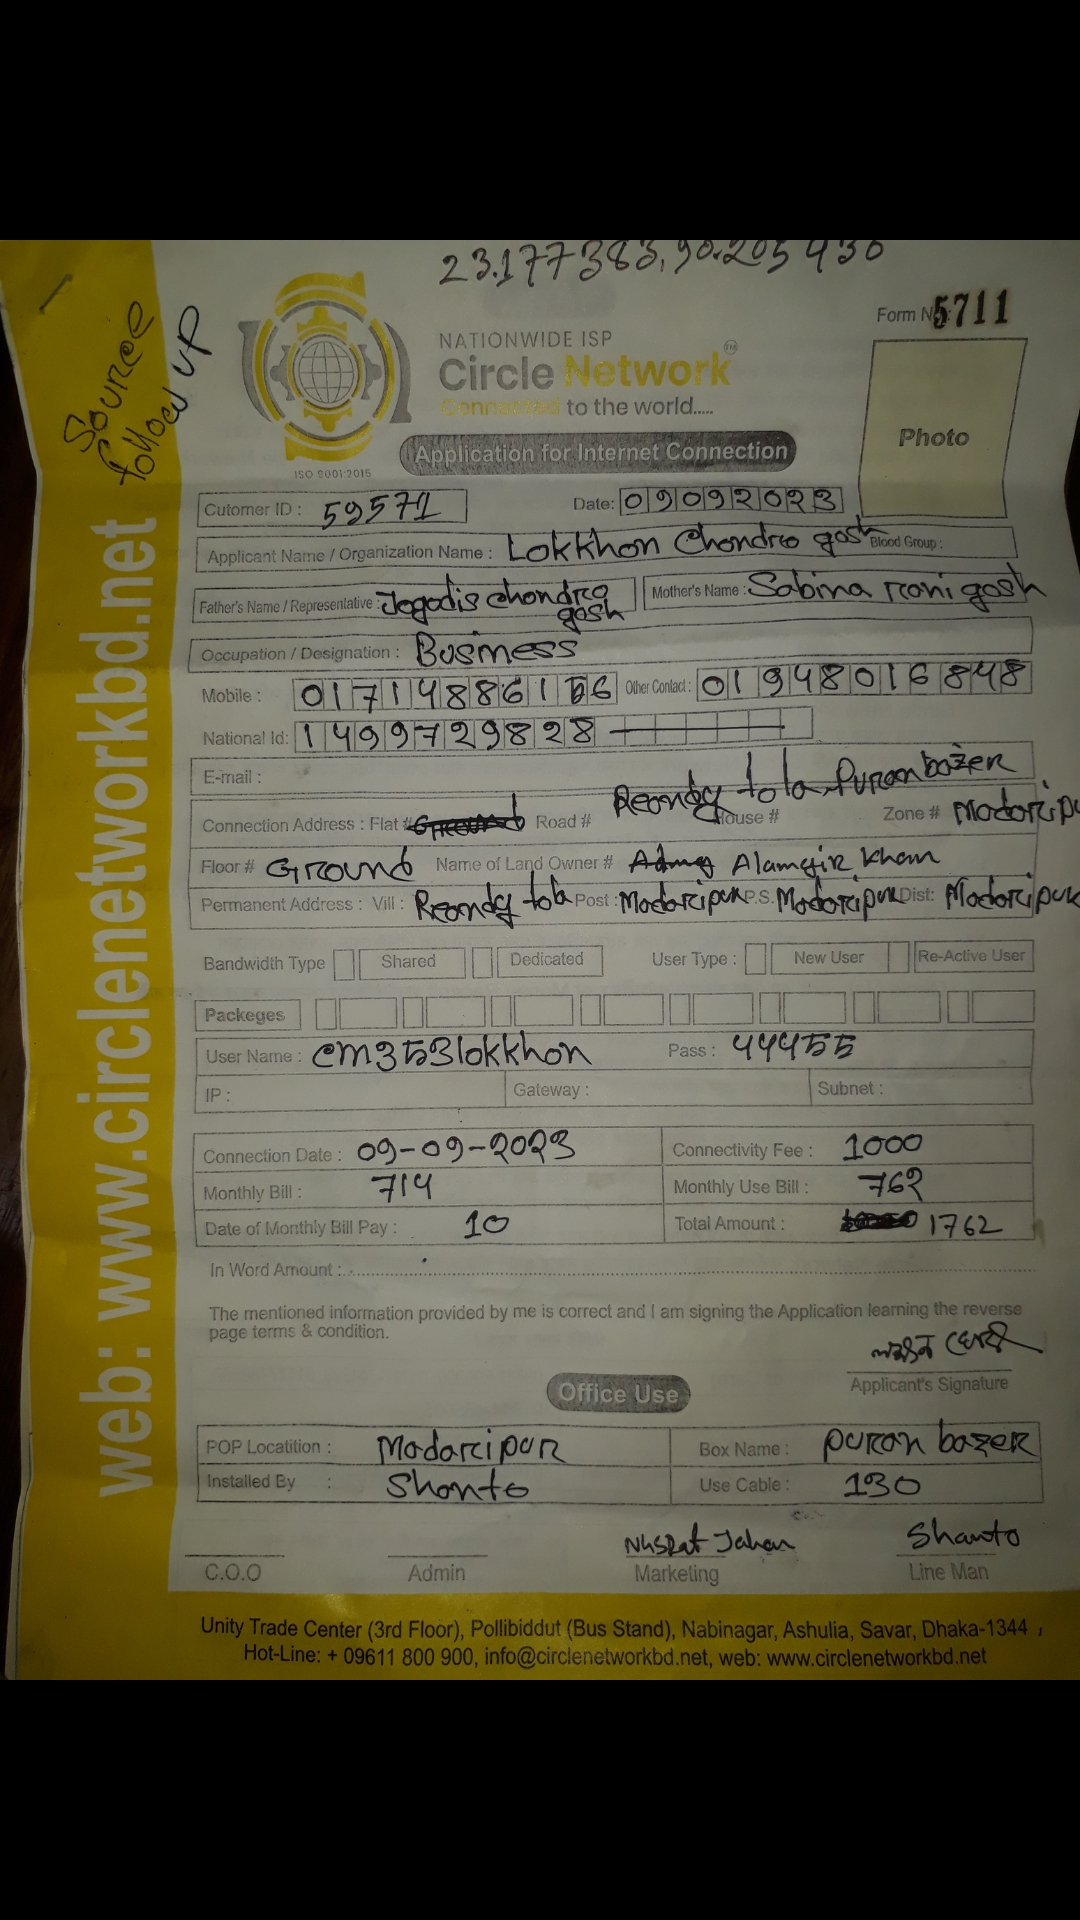 23.177383, 90.205430
Source
follow up
Form No: 5711
NATIONWIDE ISP
Circle Network TM
Connected to the world.....
Photo
Application for Internet Connection
ISO 9001:2015
Cutomer ID : 59571 Date: 09092023
Applicant Name / Organization Name : Lokkhon Chondro gosh Blood Group :
Father's Name / Representative : Jogodis chondro gosh Mother's Name : Sabina rani gosh
Occupation / Designation : Business
Mobile : 01714886156 Other Contact : 01948016848
National Id: 1499729828
E-mail :
tola Puran bazer
Connection Address : Flat # Road # House # Zone # Madarip
Floor # Ground Name of Land Owner # Alamgir khan
Permanent Address : Vill : tola Post : Madaripur P.S. Madaripur Dist: Madaripur
Bandwidth Type Shared Dedicated User Type : New User Re-Active User
Packeges
User Name : cm353lokkhon Pass : 44455
IP : Gateway : Subnet :
Connection Date : 09-09-2023 Connectivity Fee : 1000
Monthly Bill : 714 Monthly Use Bill : 762
Date of Monthly Bill Pay : 10 Total Amount : 1762
In Word Amount :
The mentioned information provided by me is correct and I am signing the Application learning the reverse
page terms & condition.
Applicant's Signature
Office Use
POP Locatition : Madaripur Box Name : puran bazer
Installed By : Shanto Use Cable : 130
Nusrat Jahan Shanto
C.O.O Admin Marketing Line Man
Unity Trade Center (3rd Floor), Pollibiddut (Bus Stand), Nabinagar, Ashulia, Savar, Dhaka-1344
Hot-Line: + 09611 800 900, info@circlenetworkbd.net, web: www.circlenetworkbd.net
web: www.circlenetworkbd.net